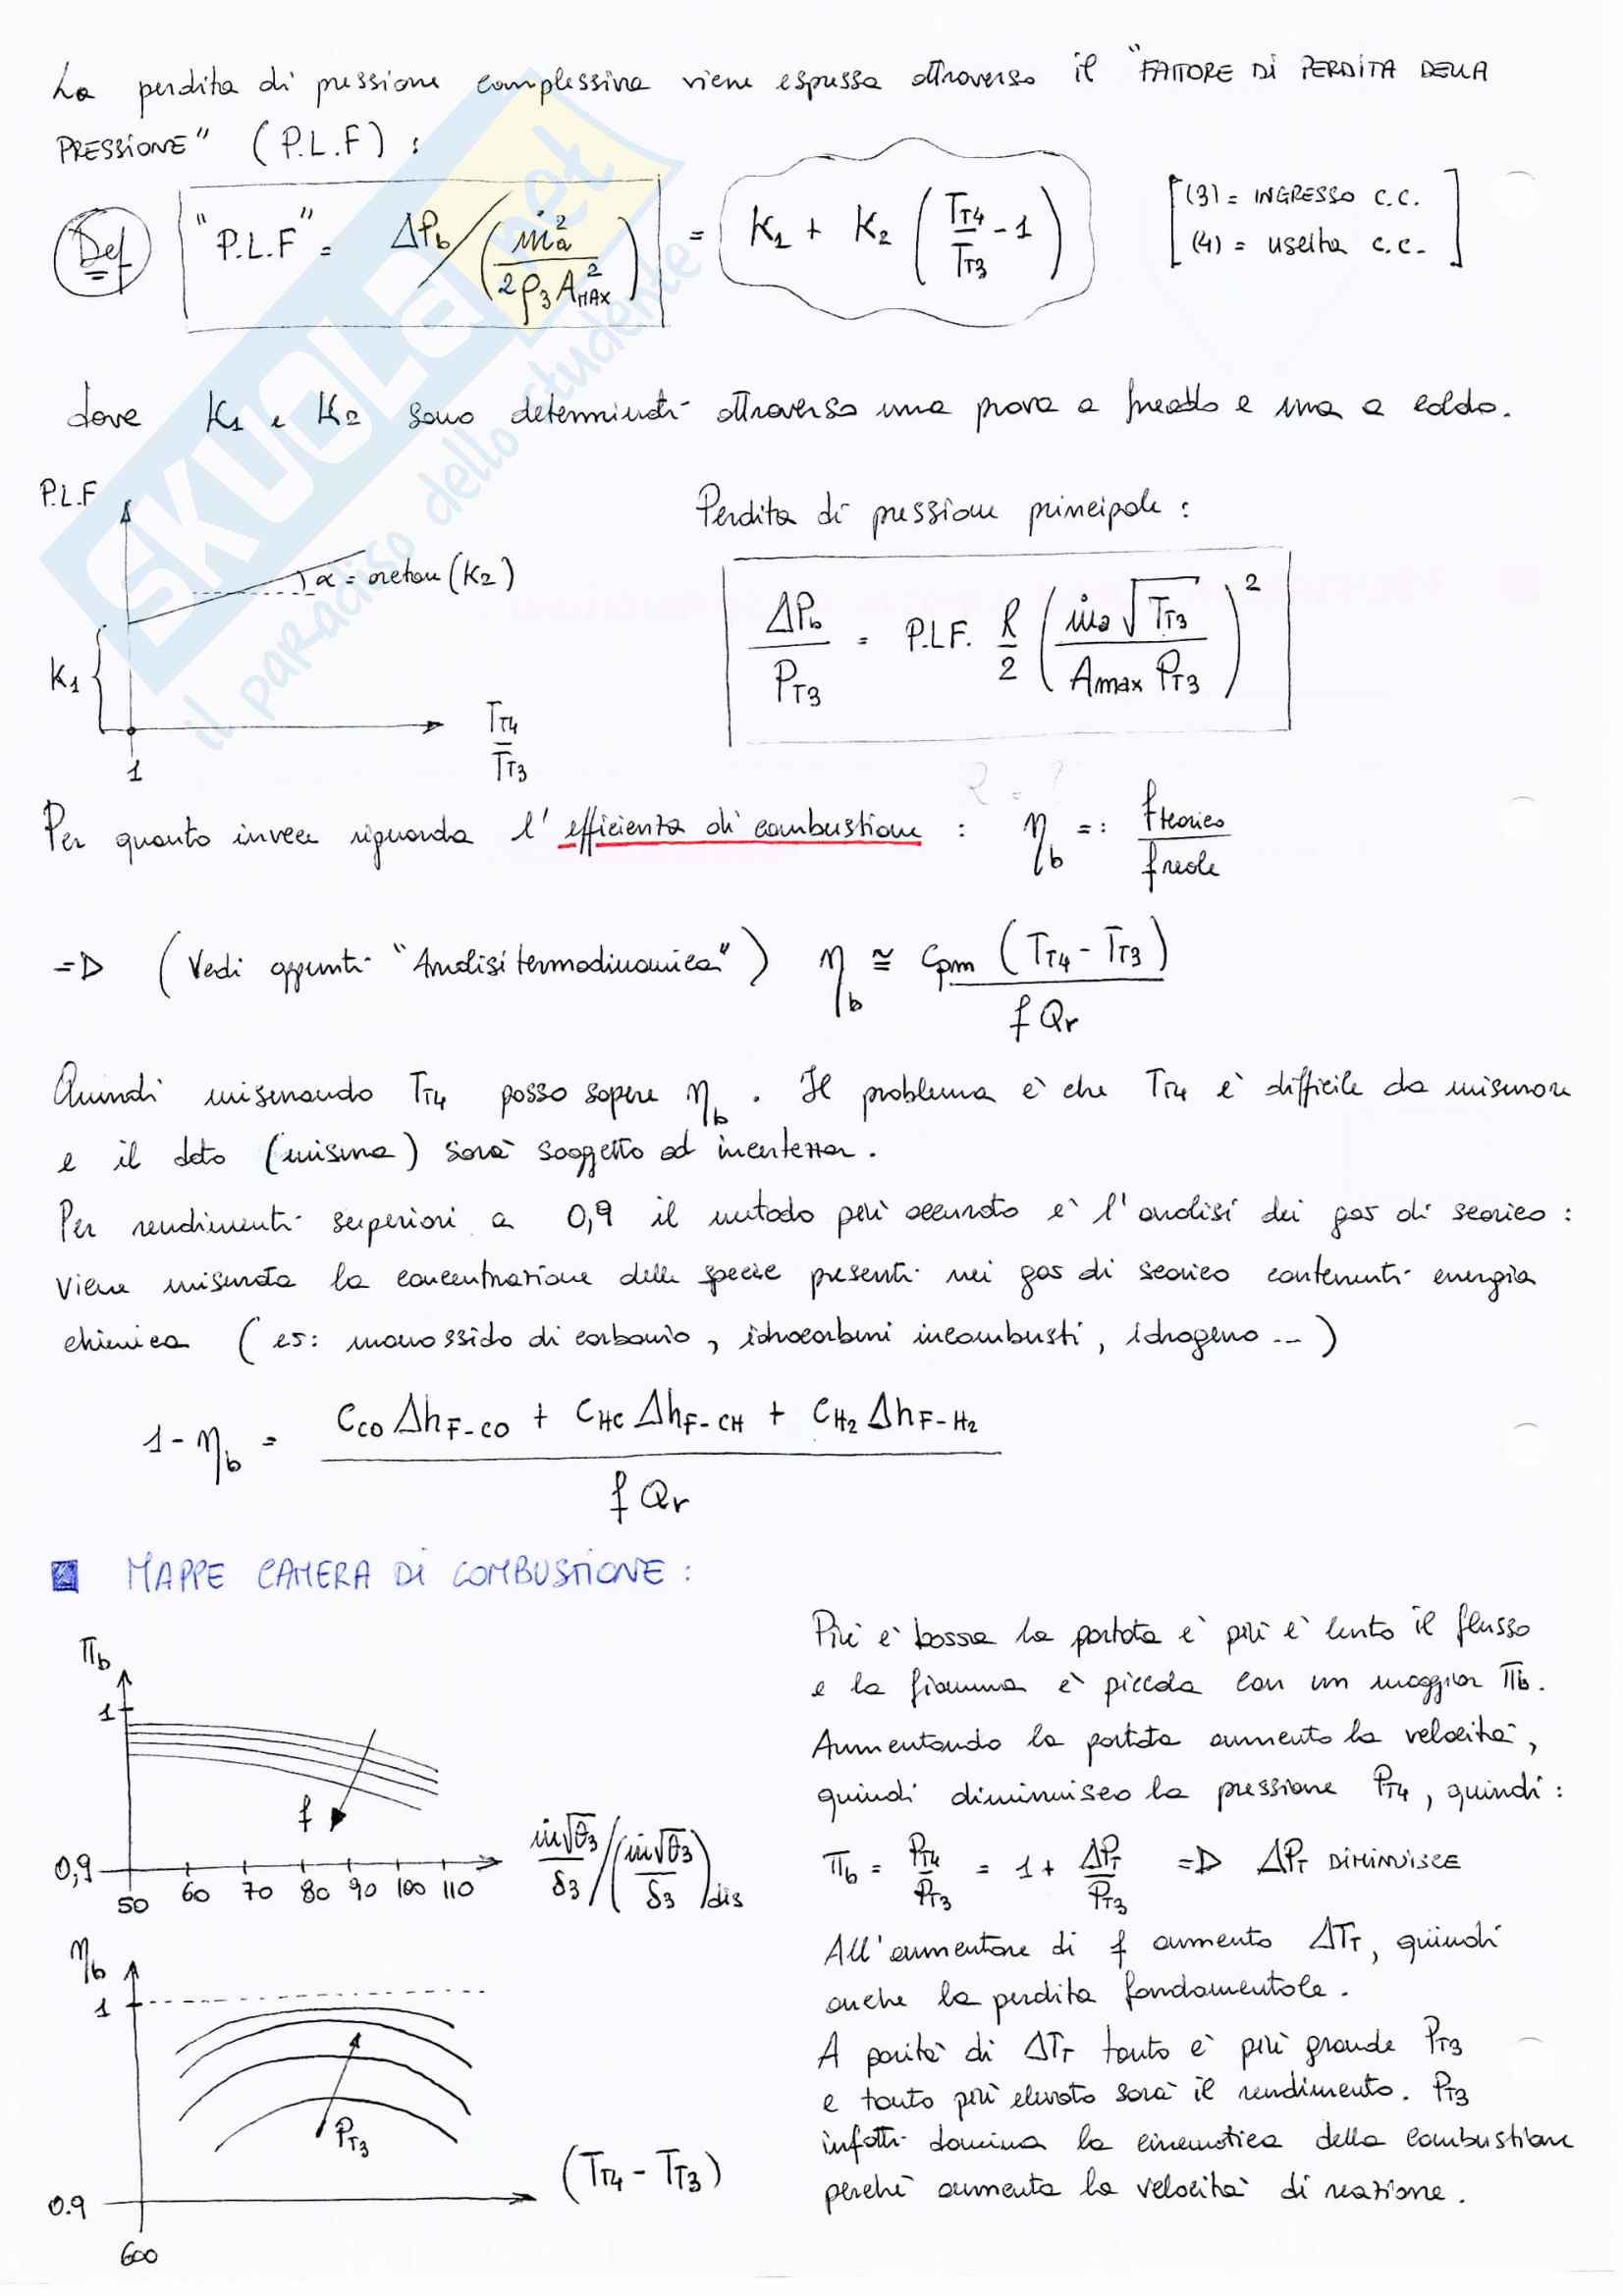 La perdita di pressione complessiva viene espressa attraverso il "FATTORE DI PERDITA DELLA
PRESSIONE" (P.L.F) :
Def "P.L.F" = ΔPb / (ṁa² / 2ρ3 AMAX²) = K1 + K2 (TT4/TT3 - 1)
[(3) = INGRESSO C.C.
(4) = uscita c.c.]
dove K1 e K2 sono determinati attraverso una prova a freddo e una a caldo.
P.L.F
α = arctan (K2)
K1
1
TT4/TT3
Perdita di pressione principale :
ΔPb/PT3 = P.L.F. R/2 (ṁa √TT3 / Amax PT3)²
Per quanto invece riguarda l'efficienza di combustione : ηb =: fteorico/freale
=> (Vedi appunti "Analisi termodinamica") ηb ≅ cpm (TT4 - TT3) / f Qr
Quindi misurando TT4 posso sapere ηb . Il problema è che TT4 è difficile da misurare
e il dato (misura) sarà soggetto ad incertezza.
Per rendimenti superiori a 0,9 il metodo più accurato è l'analisi dei gas di scarico :
viene misurata la concentrazione delle specie presenti nei gas di scarico contenenti energia
chimica (es: monossido di carbonio, idrocarburi incombusti, idrogeno ...)
1 - ηb = (CCO ΔhF-CO + CHC ΔhF-CH + CH2 ΔhF-H2) / f Qr
MAPPE CAMERA DI COMBUSTIONE :
πb
1
f
0,9
50 60 70 80 90 100 110
ṁ√θ3/δ3 / (ṁ√θ3/δ3)dis
Più è bassa la portata e più è lento il flusso
e la fiamma è piccola con un maggior πb.
Aumentando la portata aumento la velocità,
quindi diminuisco la pressione PT4, quindi :
πb = PT4/PT3 = 1 + ΔPT/PT3 => ΔPT DIMINUISCE
All'aumentare di f aumento ΔTT, quindi
anche la perdita fondamentale.
A parità di ΔTT tanto è più grande PT3
e tanto più elevato sarà il rendimento. PT3
infatti domina la cinematica della combustione
perchè aumenta la velocità di reazione.
ηb
1
PT3
0.9
600
(TT4 - TT3)
SKUOLA.net
il paradiso dello studente